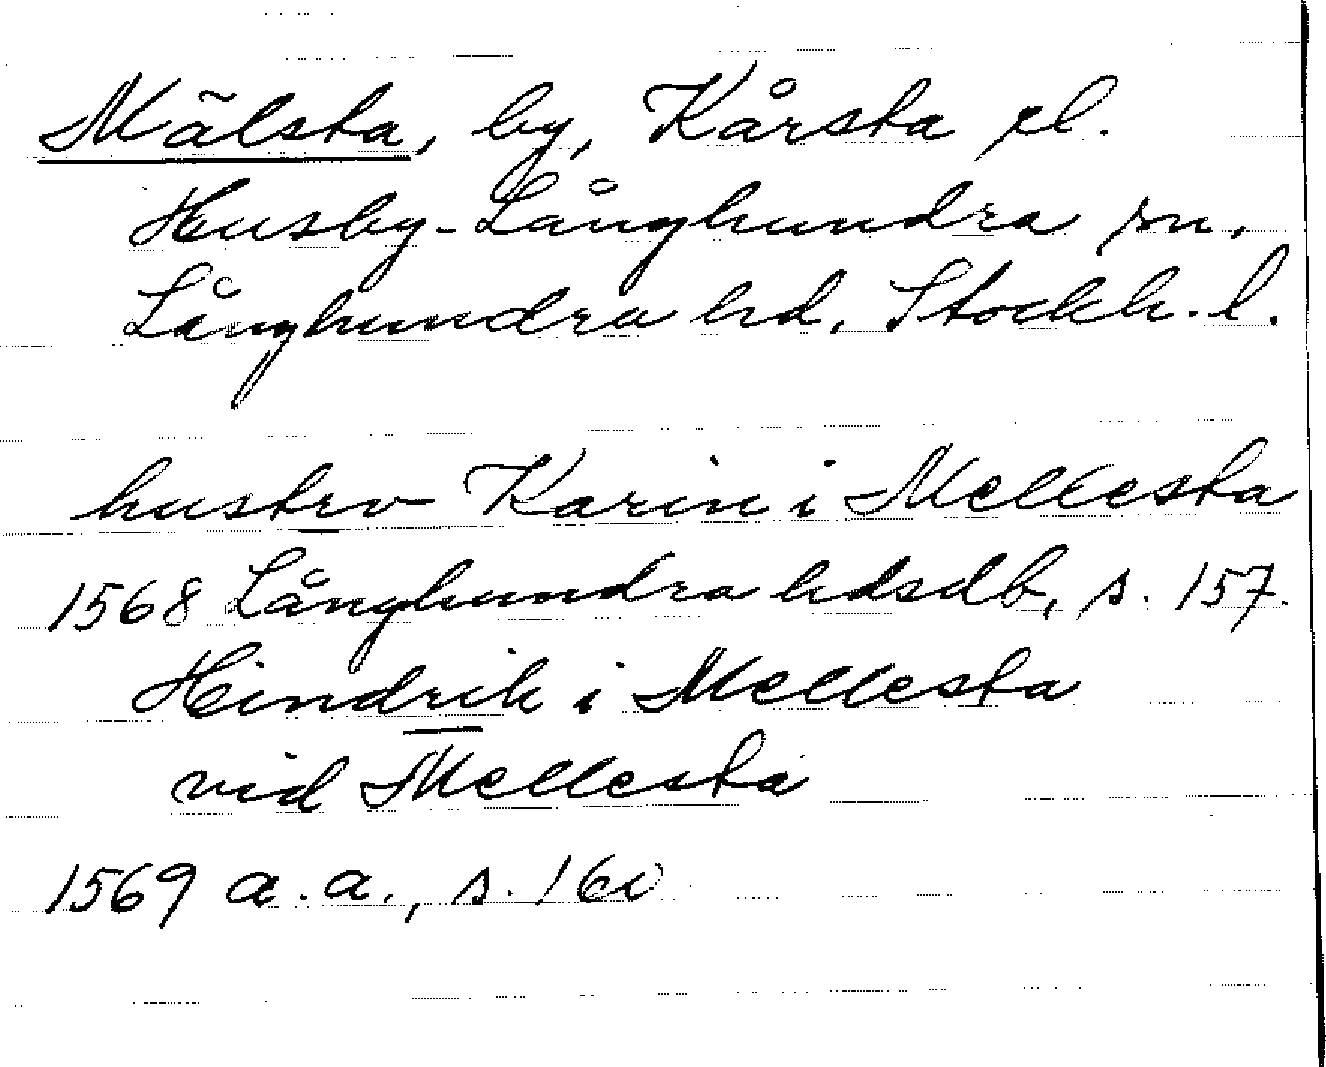 Mälsta, by, Kårsta el.
Husby-Långhundra sn.
Långhundra hd. Stockh. l.
hustrv Karin i Mellesta
1568 Långhundra hdsdb, s. 157.
Hindrik i Mellesta
vid Mellesta
1569 a.a., s. 160